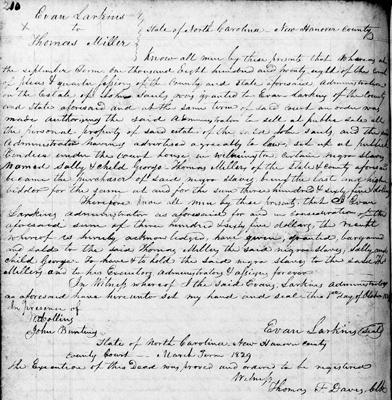 Evan Larkins
to
Thomas Miller
State of North Carolina New Hanover County
Know all men by these presents that Whereas at
the September Term one thousand Eight hundred and twenty eight of the Court
of pleas & quarter sessions of the County and State aforesaid administration
on the Estate of John was granted to Evan Larkins of the County
and State aforesaid and at the same term of said Court an order was
made authorizing the said Administrator to sell at public sale all
the personal property of said estate of the said John and the
Administrator having advertised agreeably to law, set up at public
Vendue under the Court house in Wilmington Certain negro slaves
Named Sally & Child George Thomas Miller of the State & County aforesaid
became the purchaser of said negro slaves being the last and highest
bidder for the same at and for the sum three hundred & sixty five dollars
Therefore Know all men by these presents, that I Evan
Larkins administrator as aforesaid for and in consideration of the
aforesaid sum of three hundred sixty five dollars, the receipt
whereof is hereby acknowledged have given, granted bargained
& sold to the said Thomas Miller the said negro slaves, Sally and
child George. To have & to hold the said negro slaves to the said Thos
Miller and to his Executors, Administrators & assigns forever
In Witness whereof I the said Evan Larkins administrator
as aforesaid have here unto set my hand and seal this 1st day of
In presence of
John Bunting
Evan Larkins (Seal)
State of North Carolina New Hanover County
County Court — March Term 1829
The Execution of this Deed was proved and ordered to be registered
Witness
Thomas F Davis, Clk